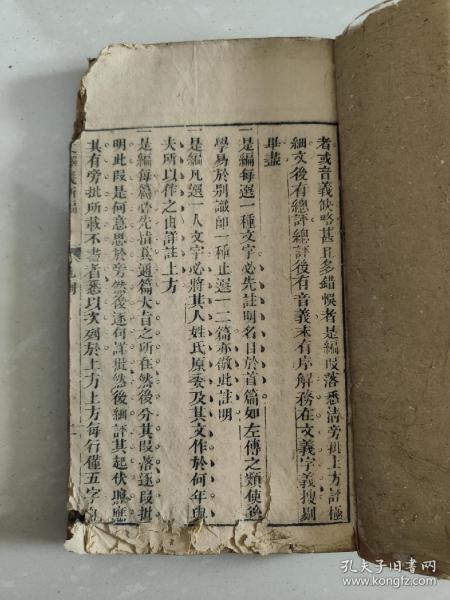 者或音義缺略甚且多錯悞者是編段落悉清旁批上方評極
細文後有總評總評後有音義末有序解務在文義字義搜剔
畢盡
一是編每選一種文字必先註明名目於首篇如左傳之類使後
學易於別識卽一種止選一二篇亦倣此註明
一是編凡選一人文字必將其人姓氏原委及其文作於何年與
夫所以作之由詳註上方
一是編每篇必先慎其通篇大旨之所在然後分其段落逐段批
明此段是何意思於旁然後逐句詳批然後細評其起伏照應
其有旁批所載不盡者悉以次列於上方上方每行僅五字
孔夫子旧书网
www.kongfz.com